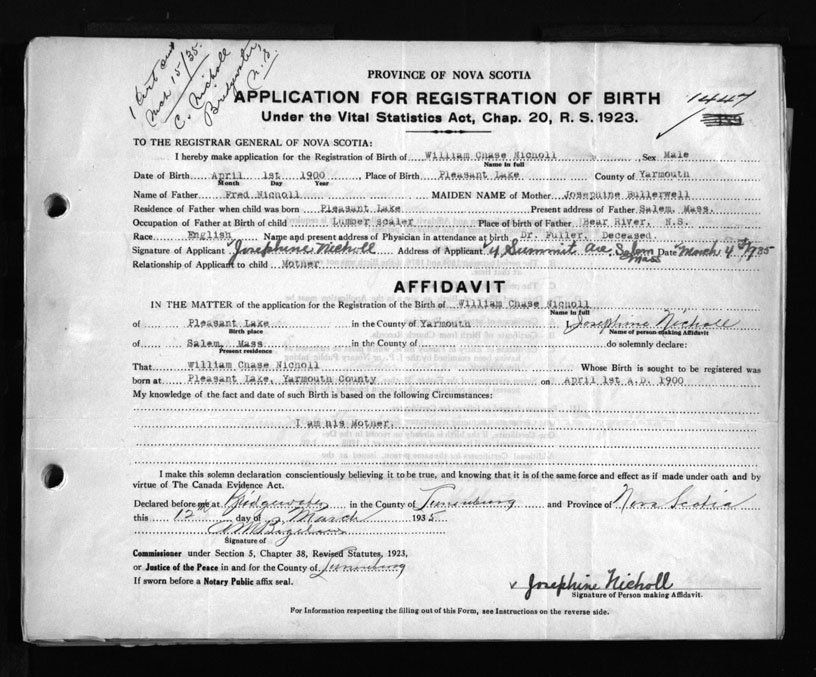 1 Cert out
Mch 15/35.
C. Nicholl
Bridgewater,
N.S.
PROVINCE OF NOVA SCOTIA
APPLICATION FOR REGISTRATION OF BIRTH
1447
Under the Vital Statistics Act, Chap. 20, R. S. 1923.
TO THE REGISTRAR GENERAL OF NOVA SCOTIA:
I hereby make application for the Registration of Birth of William Chase Nicholl, Sex Male
Name in full
Date of Birth April 1st 1900 Place of Birth Pleasant Lake County of Yarmouth
Month Day Year
Name of Father Fred Nicholl MAIDEN NAME of Mother Josephine Bullerwell
Residence of Father when child was born Pleasant Lake Present address of Father Salem, Mass.
Occupation of Father at Birth of child Lumber Scaler Place of birth of Father Bear River, N.S.
Race English Name and present address of Physician in attendance at birth Dr. Fuller, Deceased.
Signature of Applicant Josephine Nicholl Address of Applicant 4 Summit Ave, Salem Mass Date March 4th 1935
Relationship of Applicant to child Mother
AFFIDAVIT
IN THE MATTER of the application for the Registration of the Birth of William Chase Nicholl
Name in full
of Pleasant Lake in the County of Yarmouth I, Josephine Nicholl
Birth place Name of person making Affidavit
of Salem, Mass in the County of do solemnly declare:
Present residence
That William Chase Nicholl Whose Birth is sought to be registered was
born at Pleasant Lake, Yarmouth County on April 1st A.D. 1900
My knowledge of the fact and date of such Birth is based on the following Circumstances:
I am his Mother.
I make this solemn declaration conscientiously believing it to be true, and knowing that it is of the same force and effect as if made under oath and by
virtue of The Canada Evidence Act.
Declared before me at Bridgewater in the County of Lunenburg and Province of Nova Scotia
this 12th day of March 1935
Signature of
Commissioner under Section 5, Chapter 38, Revised Statutes, 1923,
or Justice of the Peace in and for the County of Lunenburg
If sworn before a Notary Public affix seal.
x Josephine Nicholl
Signature of Person making Affidavit.
For Information respecting the filling out of this Form, see Instructions on the reverse side.